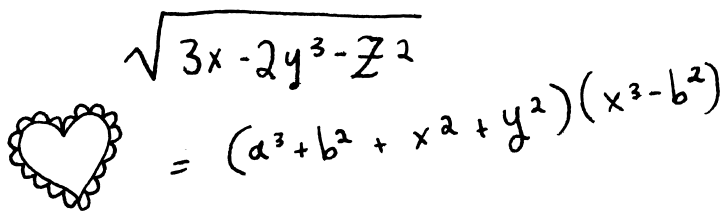 √(3x - 2y³ - z²)
= (a³ + b² + x² + y²)(x³ - b²)